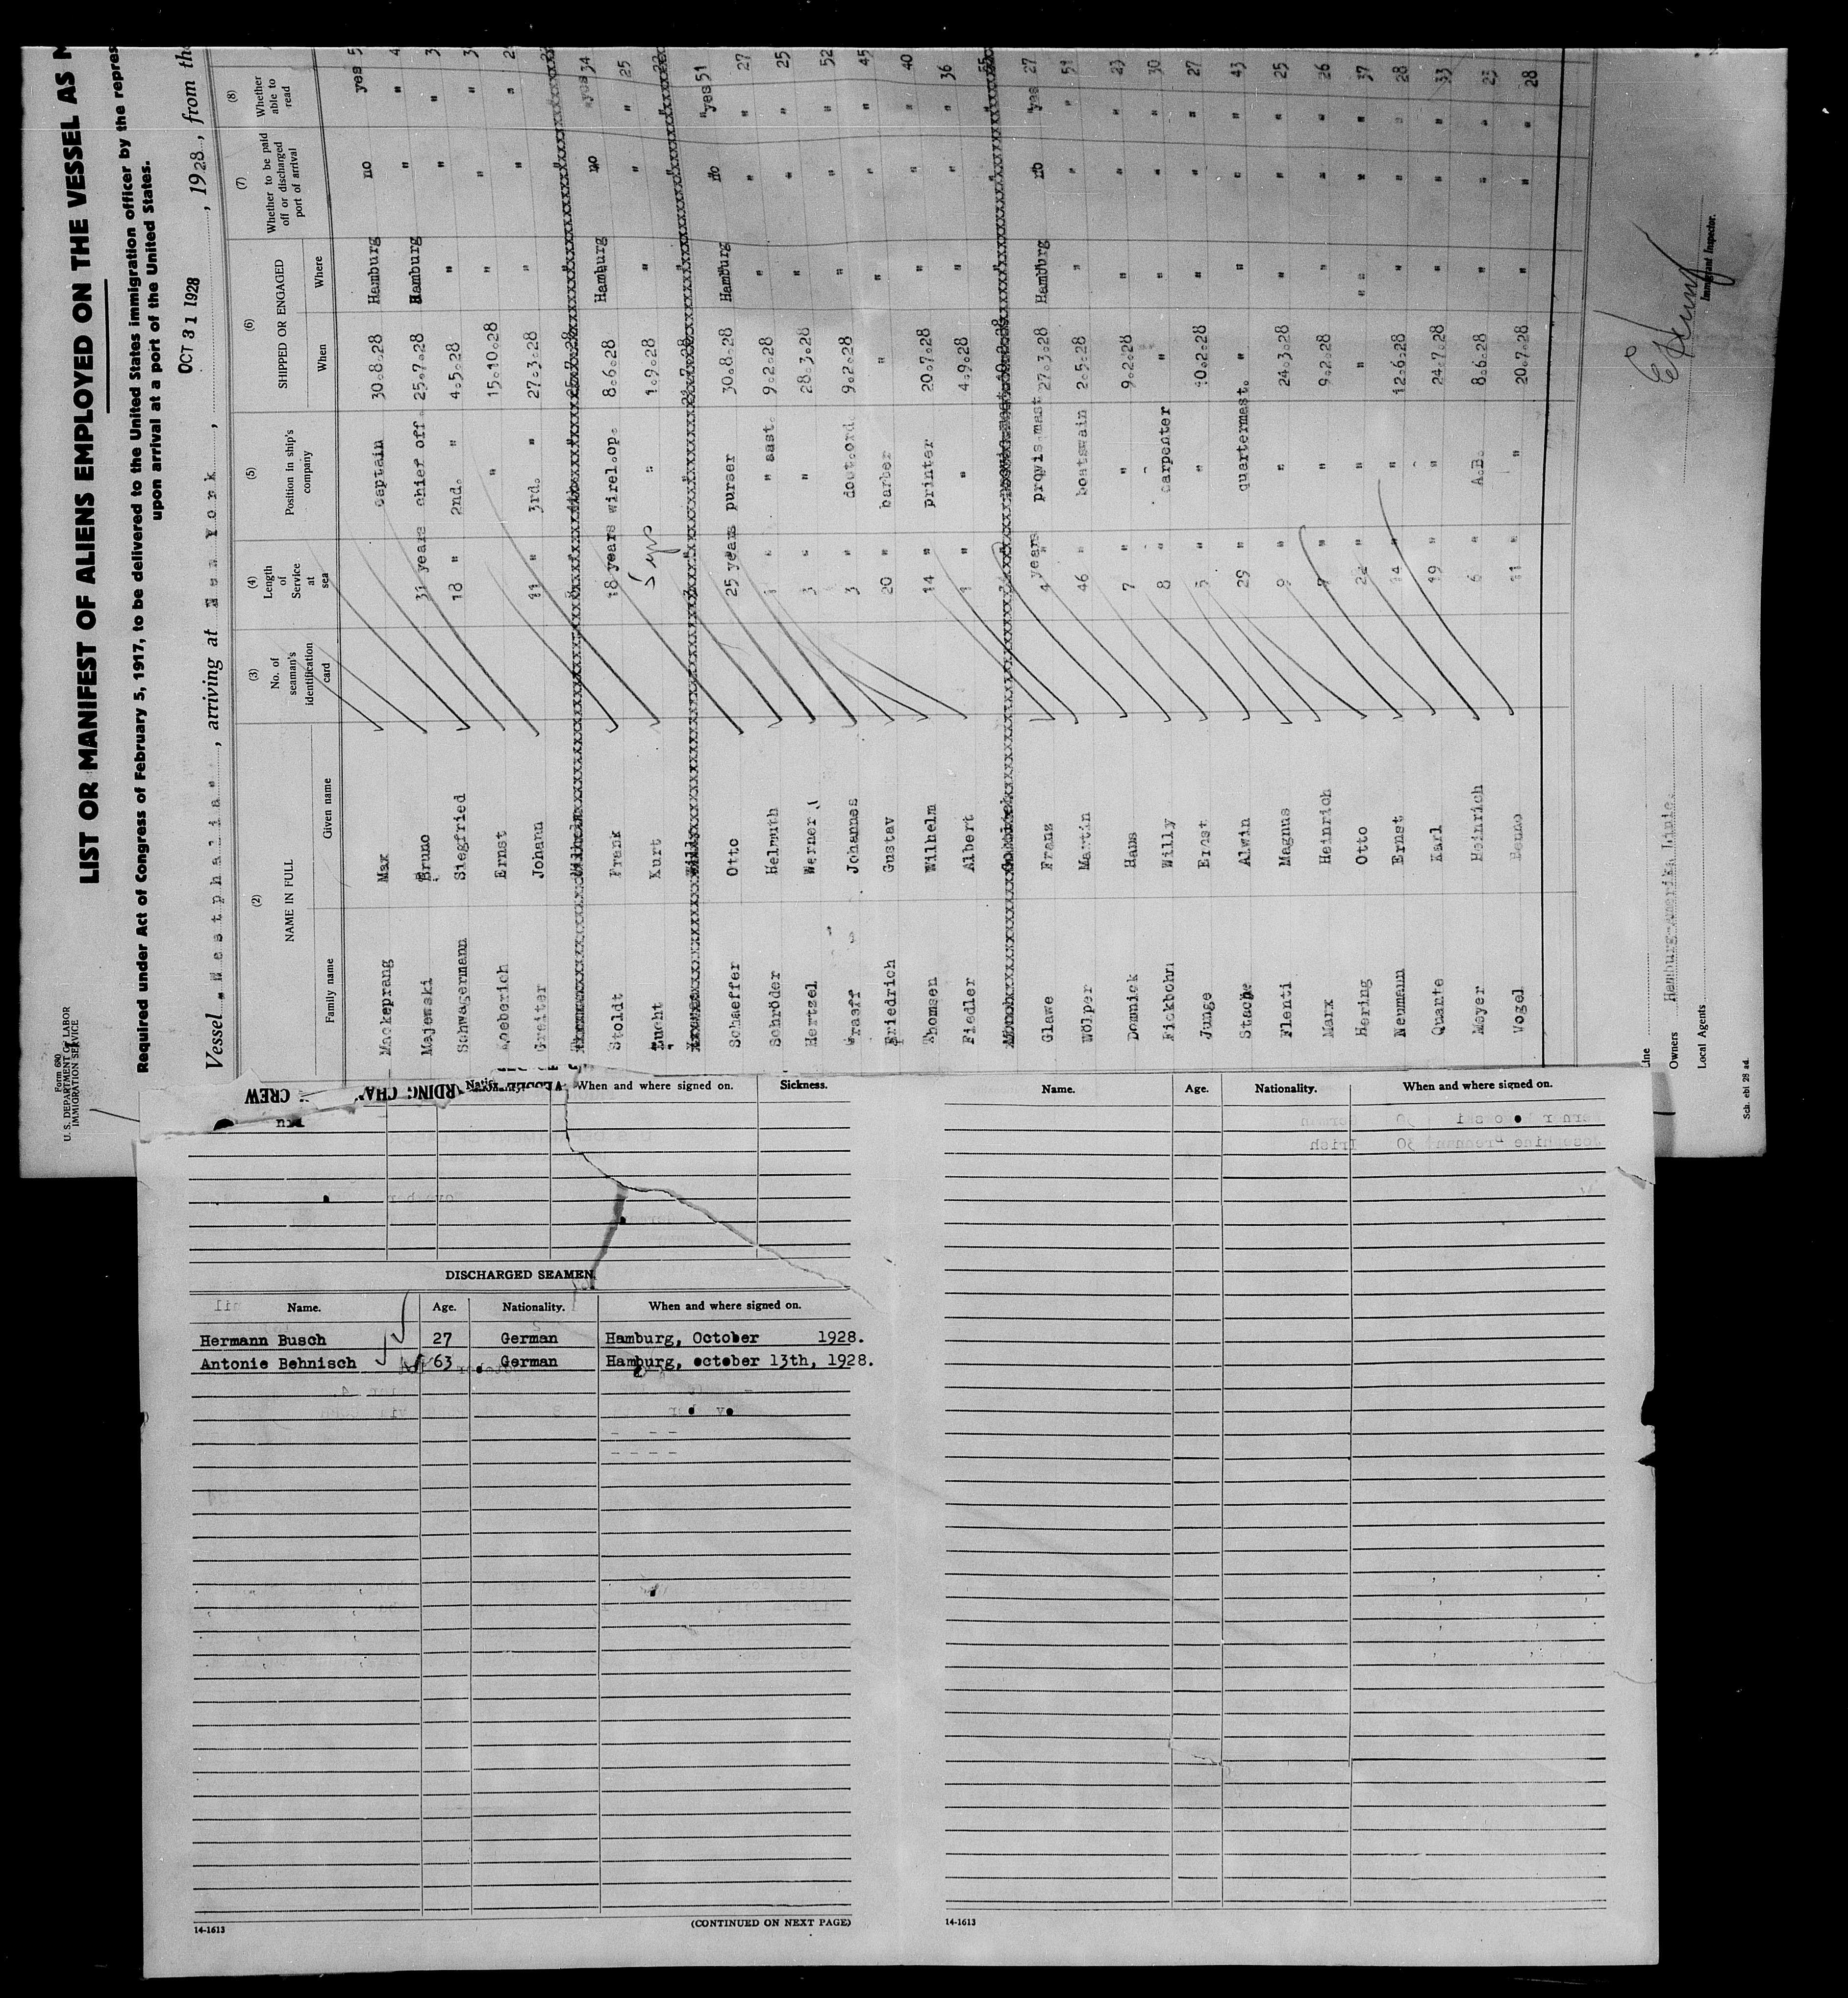 Form 680
U. S. DEPARTMENT OF LABOR
IMMIGRATION SERVICE
LIST OR MANIFEST OF ALIENS EMPLOYED ON THE VESSEL AS
Required under Act of Congress of February 5, 1917, to be delivered to the United States immigration officer by the repres
upon arrival at a port of the United States.
Vessel "Westphalia", arriving at New York, OCT 31 1928, 1928, from the
(2) (3) (4) (5) (6) (7) (8)
NAME IN FULL No. of seaman's identification card Length of Service at sea Position in ship's company SHIPPED OR ENGAGED Whether to be paid off or discharged port of arrival Whether able to read
Family name Given name When Where
Mackeprang Max captain 30.8.28 Hamburg no yes
Majewski Bruno 31 years chief off. 25.7.28 Hamburg " "
Schwagermann Siegfried 18 " 2nd. " 4.5.28 " " "
Ernst " 15.10.28 " " "
Greiter Johann 11 " 3rd. " 27.3.28 " " "
Stoldt Frank 18 years wirel.op. 8.6.28 Hamburg no yes 34
Zucht Kurt 5 yrs " 1.9.28 " " " 25
Schaeffer Otto 25 years purser 30.8.28 Hamburg no yes 51
Schröder Helmuth 1 " " asst. 9.2.28 " " " 27
Hertzel Werner 3 " " 28.3.28 " " " 25
Graeff Johannes 3 " doct.ord. 9.2.28 " " " 52
Friedrich Gustav 20 " barber " " " " 45
Thomsen Wilhelm 14 " printer 20.7.28 " " " 40
Fiedler Albert 1 " " 4.9.28 " " " 36
Glawe Franz 4 years provis.mast 27.3.28 Hamburg no yes 27
Wölper Martin 46 " boatswain 2.5.28 " " " 51
Domnick Hans 7 " " 9.2.28 " " " 23
Fickbohm Willy 8 " carpenter " " " " 30
Junge Ernst 3 " " 10.2.28 " " " 27
Stache Alwin 29 " quartermast. " " " " 43
Flenti Magnus 9 " " 24.3.28 " " " 25
Marx Heinrich " " 9.2.28 " " " 26
Hering Otto 22 " " " " " " " 37
Neumann Ernst 14 " " 12.6.28 " " " 28
Quante Karl 19 " " 24.7.28 " " " 33
Meyer Heinrich 6 " A.B. 8.6.28 " " " 23
Vogel Benno 11 " " 20.7.28 " " " 28
Immigrant Inspector.
Line
Owners Hamburg-Amerika Linie.
Local Agents
Sch. ebl 28 ad.
CREW
When and where signed on. Sickness.
DISCHARGED SEAMEN
Name. Age. Nationality. When and where signed on.
Hermann Busch 27 German Hamburg, October 1928.
Antonie Behnisch 63 German Hamburg, october 13th, 1928.
14-1613 (CONTINUED ON NEXT PAGE)
Name. Age. Nationality. When and where signed on.
14-1613